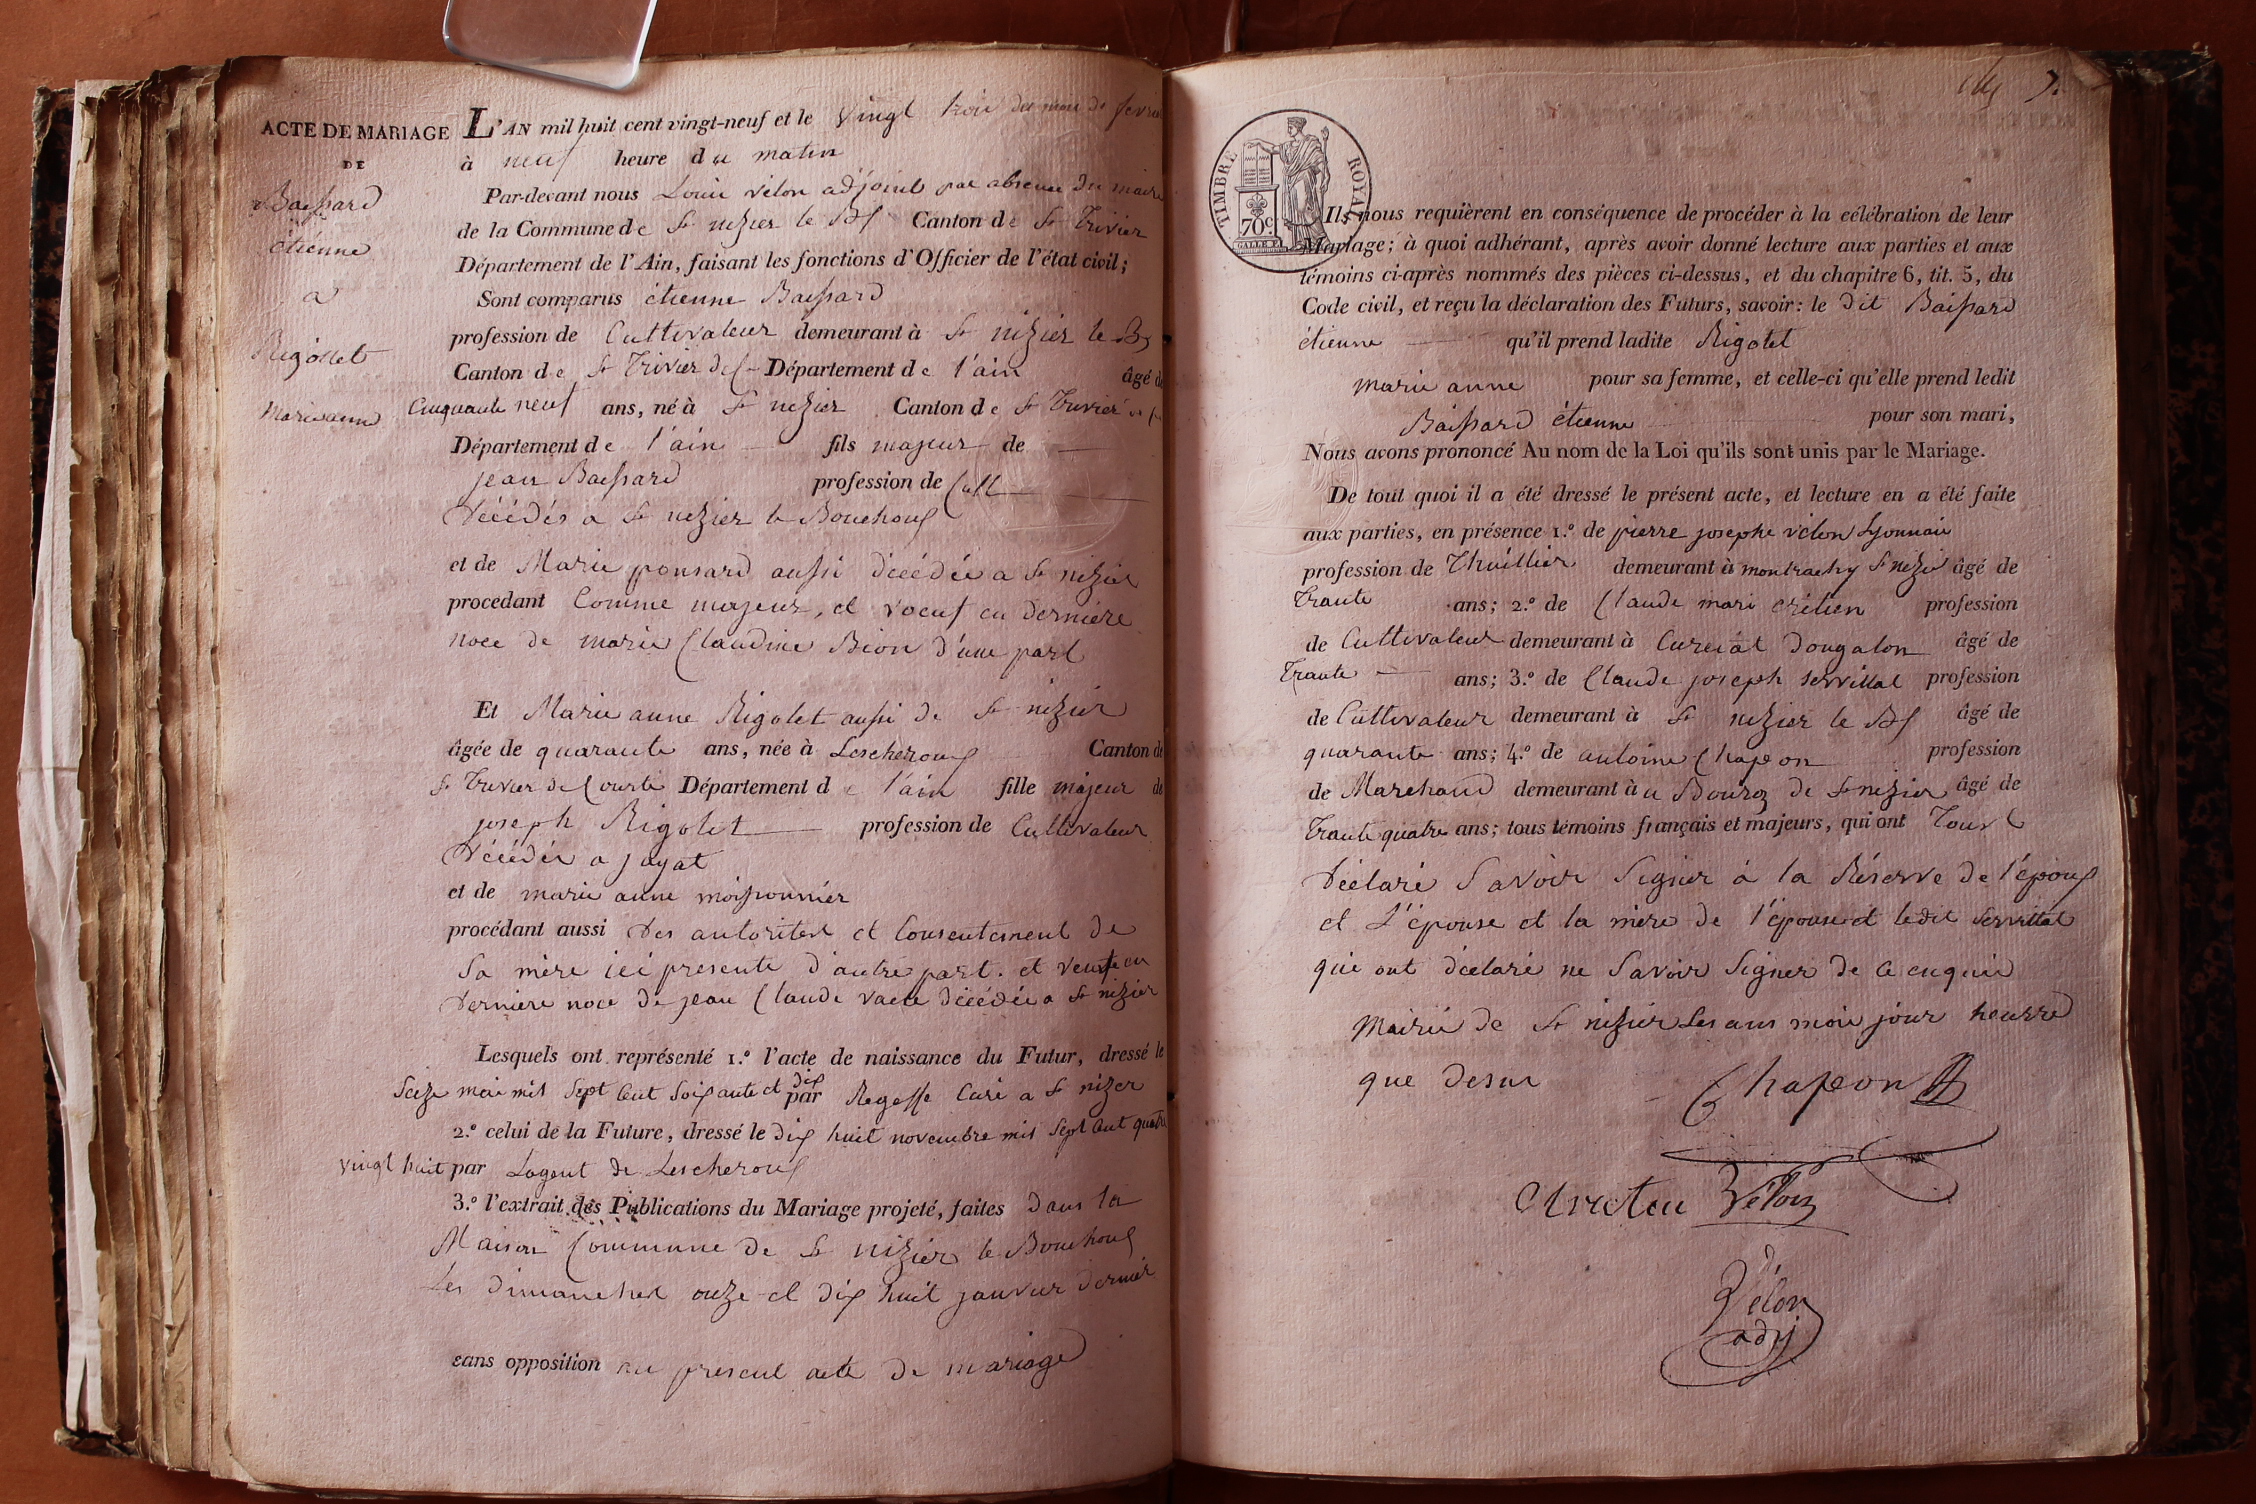 ACTE DE MARIAGE
DE
Baissard
étiénne
a
Rigollet
Marieanne
L'AN mil huit cent vingt-neuf et le vingt trois du mois de fevrier
à neuf heure du matin
Par-devant nous Louis vélon adjoint par absence du maire
de la Commune de St nizier le Bx Canton de St Trivier
Département de l'Ain, faisant les fonctions d'Officier de l'état civil;
Sont comparus étienne Baissard
profession de Cultivateur demeurant à St nizier le Bx
Canton de St Trivier de C Département de l'ain âgé de
Cinquante neuf ans, né à St nizier Canton de St Trivier
Département de l'ain fils majeur de
jean Baissard profession de Cult
Décédés a St nizier le Bouchoux
et de Marie ponsard aussi décédée a St nizier
procédant Comme majeur, et voeuf en derniére
noce de marie Claudine Bion d'une part
Et Marie anne Rigolet aussi de St nizier
âgée de quarante ans, née à Lescheroux Canton de
St Trivier de Courte Département de l'ain fille majeur de
joseph Rigolet profession de Cultivateur
Décédée a jayat
et de marie anne moissonnier
procédant aussi Des autoritee et Consentement de
Sa mère ici presente d'autre part. et veuve en
Derniere noce de jean Claude vacle décédé a St nizier
Lesquels ont représenté 1.º l'acte de naissance du Futur, dressé le
Seize mai mil Sept Cent Soixante et dix par Curé a St nizer
2.º celui de la Future, dressé le dix huit novembre mil Sept Cent quatre
vingt huit par Lagent de Lescheroux
3.º l'extrait des Publications du Mariage projeté, faites Dans la
Maison Commune de St nizier le Bouchoux
Les dimanches onze et dix huit janvier dernier
sans opposition au present acte de mariage
TIMBRE ROYAL
70c
Ils nous requièrent en conséquence de procéder à la célébration de leur
Mariage; à quoi adhérant, après avoir donné lecture aux parties et aux
témoins ci-après nommés des pièces ci-dessus, et du chapitre 6, tit. 5, du
Code civil, et reçu la déclaration des Futurs, savoir: le dit Baissard
étienne qu'il prend ladite Rigolet
marie anne pour sa femme, et celle-ci qu'elle prend ledit
Baissard étienne pour son mari,
Nous avons prononcé Au nom de la Loi qu'ils sont unis par le Mariage.
De tout quoi il a été dressé le présent acte, et lecture en a été faite
aux parties, en présence 1.º de pierre josephe vélon Lyonnais
profession de Thuillier demeurant à montrachy St nizié âgé de
Trante ans; 2.º de Claude mari crétien profession
de Cultivateur demeurant à Curciat Dongalon âgé de
Trante ans; 3.º de Claude joseph servillat profession
de Cultivateur demeurant à St nizier le Bx âgé de
quarante ans; 4.º de antoine Chapeon profession
de Marchand demeurant à u Bourg de St nizier âgé de
Trante quatre ans; tous témoins français et majeurs, qui ont Tous
Déclaré Savoir Signer à la Réserve de l'époux
et L'épouse et la mère de l'épouse et ledit servillat
qui ont déclaré ne Savoir Signer de Ce enquis
Mairie de St nizier Les ans mois jour heurre
que desus
Chapeon
Crretien Vélon
Vélon
adj